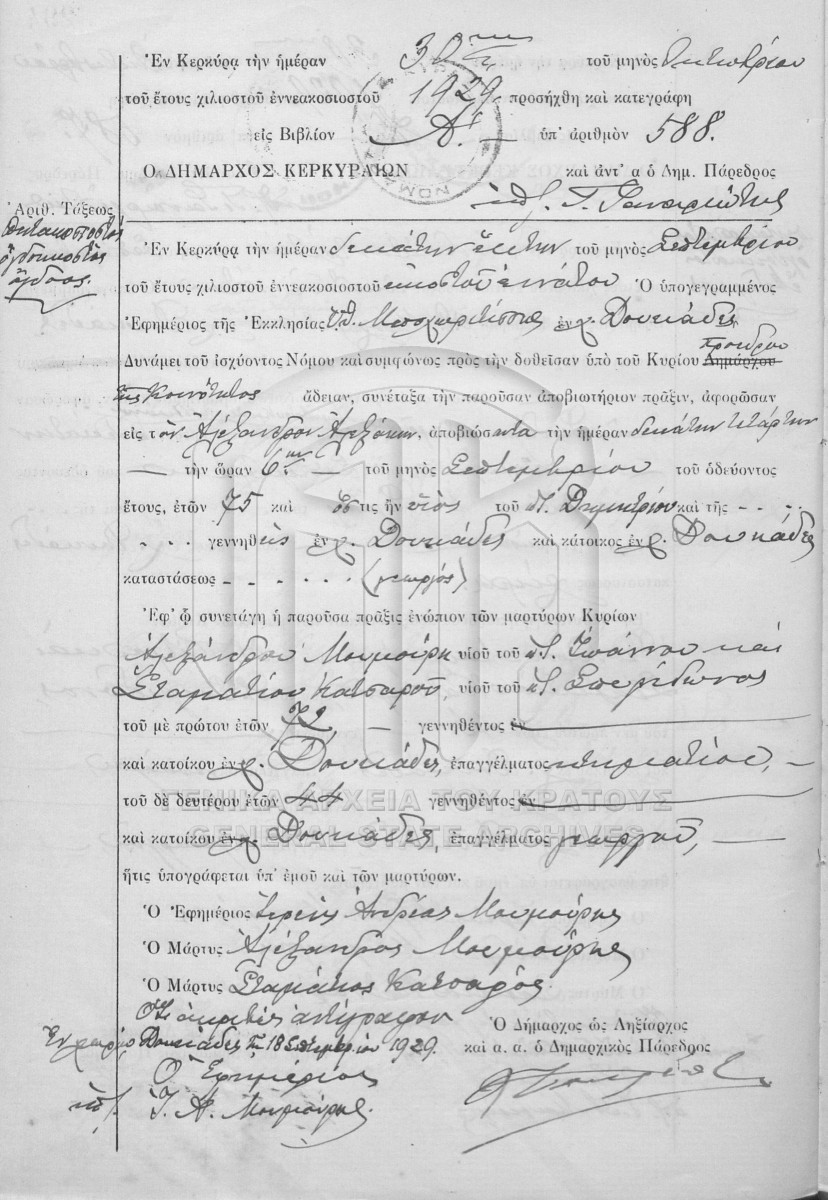 Ἐν Κερκύρᾳ τὴν ἡμέραν 30ην τοῦ μηνὸς Ὀκτωβρίου
τοῦ ἔτους χιλιοστοῦ ἐννεακοσιοστοῦ 1929 προσήχθη καὶ κατεγράφη
εἰς Βιβλίον Α'. — ὑπ' ἀριθμὸν 588.
Ο ΔΗΜΑΡΧΟΣ ΚΕΡΚΥΡΑΙΩΝ καὶ ἀντ' α ὁ Δημ. Πάρεδρος
Ἀριθ. Τάξεως
πεντακοσιοστὸς
ὀγδοηκοστὸς
ὄγδοος.
Ἐν Κερκύρᾳ τὴν ἡμέραν δεκάτην ἕκτην τοῦ μηνὸς Σεπτεμβρίου
τοῦ ἔτους χιλιοστοῦ ἐννεακοσιοστοῦ εἰκοστοῦ ἐννάτου Ὁ ὑπογεγραμμένος
Ἐφημέριος τῆς Ἐκκλησίας ἐν χ. Δουκάδες
Δυνάμει τοῦ ἰσχύοντος Νόμου καὶ συμφώνως πρὸς τὴν δοθεῖσαν ὑπὸ τοῦ Κυρίου Δημάρχου προέδρου
τῆς Κοινότητος ἄδειαν, συνέταξα τὴν παροῦσαν ἀποβιωτήριον πρᾶξιν, ἀφορῶσαν
εἰς τὸν Ἀλέξανδρον ἀποβιώσαντα τὴν ἡμέραν δεκάτην τετάρτην
— τὴν ὥραν 6ην — τοῦ μηνὸς Σεπτεμβρίου τοῦ ὁδεύοντος
ἔτους, ἐτῶν 75 καὶ ὅστις ἦν υἱὸς τοῦ π. Δημητρίου καὶ τῆς - - . .
. . . γεννηθεὶς ἐν χ. Δουκάδες καὶ κάτοικος ἐν χ. Δουκάδες
καταστάσεως - - - - - (γεωργός)
Ἐφ' ᾧ συνετάγη ἡ παροῦσα πρᾶξις ἐνώπιον τῶν μαρτύρων Κυρίων
Ἀλεξάνδρου Μουμούρη υἱοῦ τοῦ π. Ἰωάννου καὶ
Σταματίου Κατσαροῦ, υἱοῦ τοῦ π. Σπυρίδωνος
τοῦ μὲ πρώτου ἐτῶν 72, — γεννηθέντος ἐν —
καὶ κατοίκου ἐν χ. Δουκάδες, ἐπαγγέλματος κτηματίου, —
τοῦ δὲ δευτέρου ἐτῶν 44 γεννηθέντος ἐν —
καὶ κατοίκου ἐν χ. Δουκάδες, ἐπαγγέλματος γεωργοῦ, —
ἥτις ὑπογράφεται ὑπ' ἐμοῦ καὶ τῶν μαρτύρων.
Ὁ Ἐφημέριος Ἱερεὺς Ἀνδρέας Μουμούρης
Ὁ Μάρτυς Ἀλέξανδρος Μουμούρης
Ὁ Μάρτυς Σταμάτιος Κατσαρός.
Ὅτι ἀκριβὲς ἀντίγραφον
Ἐν χωρίῳ Δουκάδες τῇ 18 Σεπτεμβρίου 1929.
Ὁ Ἐφημέριος
Ἱ. Α. Μουμούρης.
Ὁ Δήμαρχος ὡς Ληξίαρχος
καὶ α. α. ὁ Δημαρχικὸς Πάρεδρος
ΓΕΝΙΚΑ ΑΡΧΕΙΑ ΤΟΥ ΚΡΑΤΟΥΣ
GENERAL STATE ARCHIVES